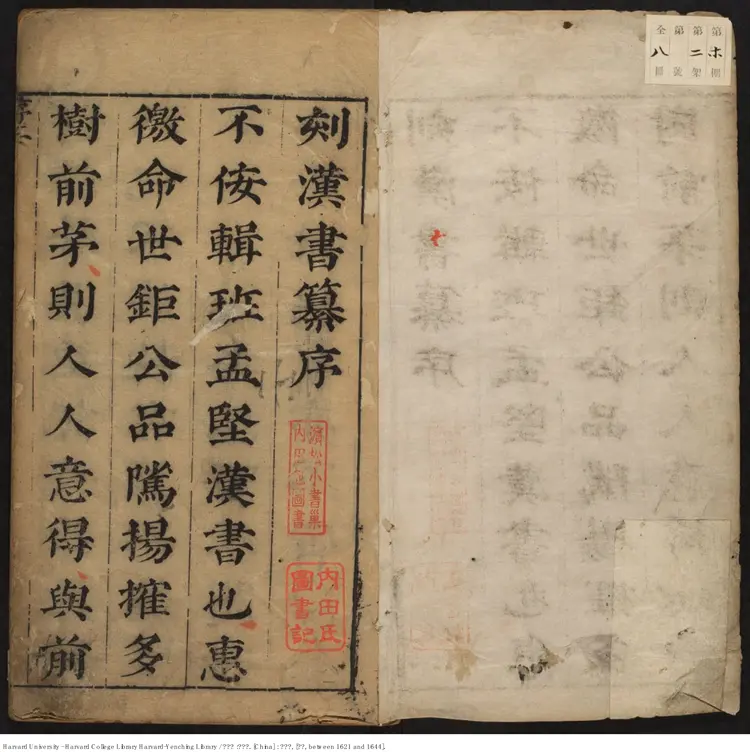 刻漢書纂序
不佞輯班孟堅漢書也惠
徼命世鉅公品隲揚搉多
樹前茅則人人意得與前
內田氏
圖書記
第二架
第 號
全八冊
Harvard University - Harvard College Library Harvard-Yenching Library / ??? : ???. [China] : ???, [??, between 1621 and 1644].